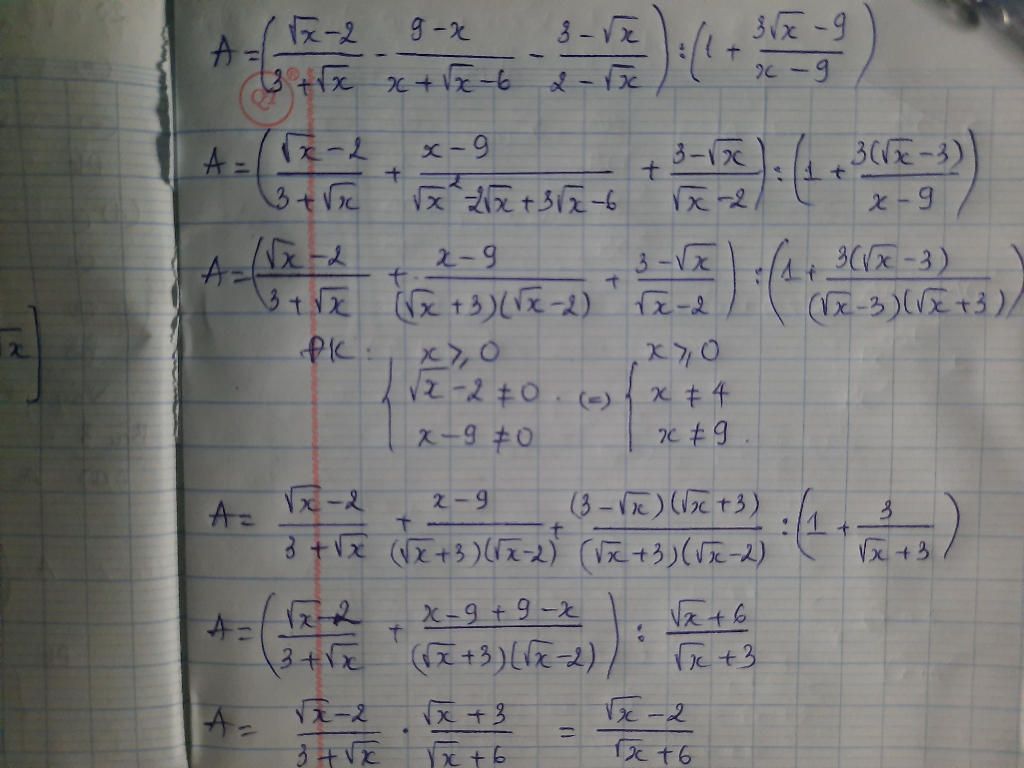 A = ( (√x - 2)/(3 + √x) - (9 - x)/(x + √x - 6) - (3 - √x)/(2 - √x) ) : ( 1 + (3√x - 9)/(x - 9) )
A = ( (√x - 2)/(3 + √x) + (x - 9)/(√x² - 2√x + 3√x - 6) + (3 - √x)/(√x - 2) ) : ( 1 + 3(√x - 3)/(x - 9) )
A = ( (√x - 2)/(3 + √x) + (x - 9)/((√x + 3)(√x - 2)) + (3 - √x)/(√x - 2) ) : ( 1 + 3(√x - 3)/((√x - 3)(√x + 3)) )
√x]
ĐK : { x ≥ 0 x ≥ 0
√x - 2 ≠ 0 . (=) { x ≠ 4
x - 9 ≠ 0 x ≠ 9 .
A = (√x - 2)/(3 + √x) + (x - 9)/((√x + 3)(√x - 2)) + ((3 - √x)(√x + 3))/((√x + 3)(√x - 2)) : ( 1 + 3/(√x + 3) )
A = ( (√x - 2)/(3 + √x) + (x - 9 + 9 - x)/((√x + 3)(√x - 2)) ) : (√x + 6)/(√x + 3)
A = (√x - 2)/(3 + √x) . (√x + 3)/(√x + 6) = (√x - 2)/(√x + 6)